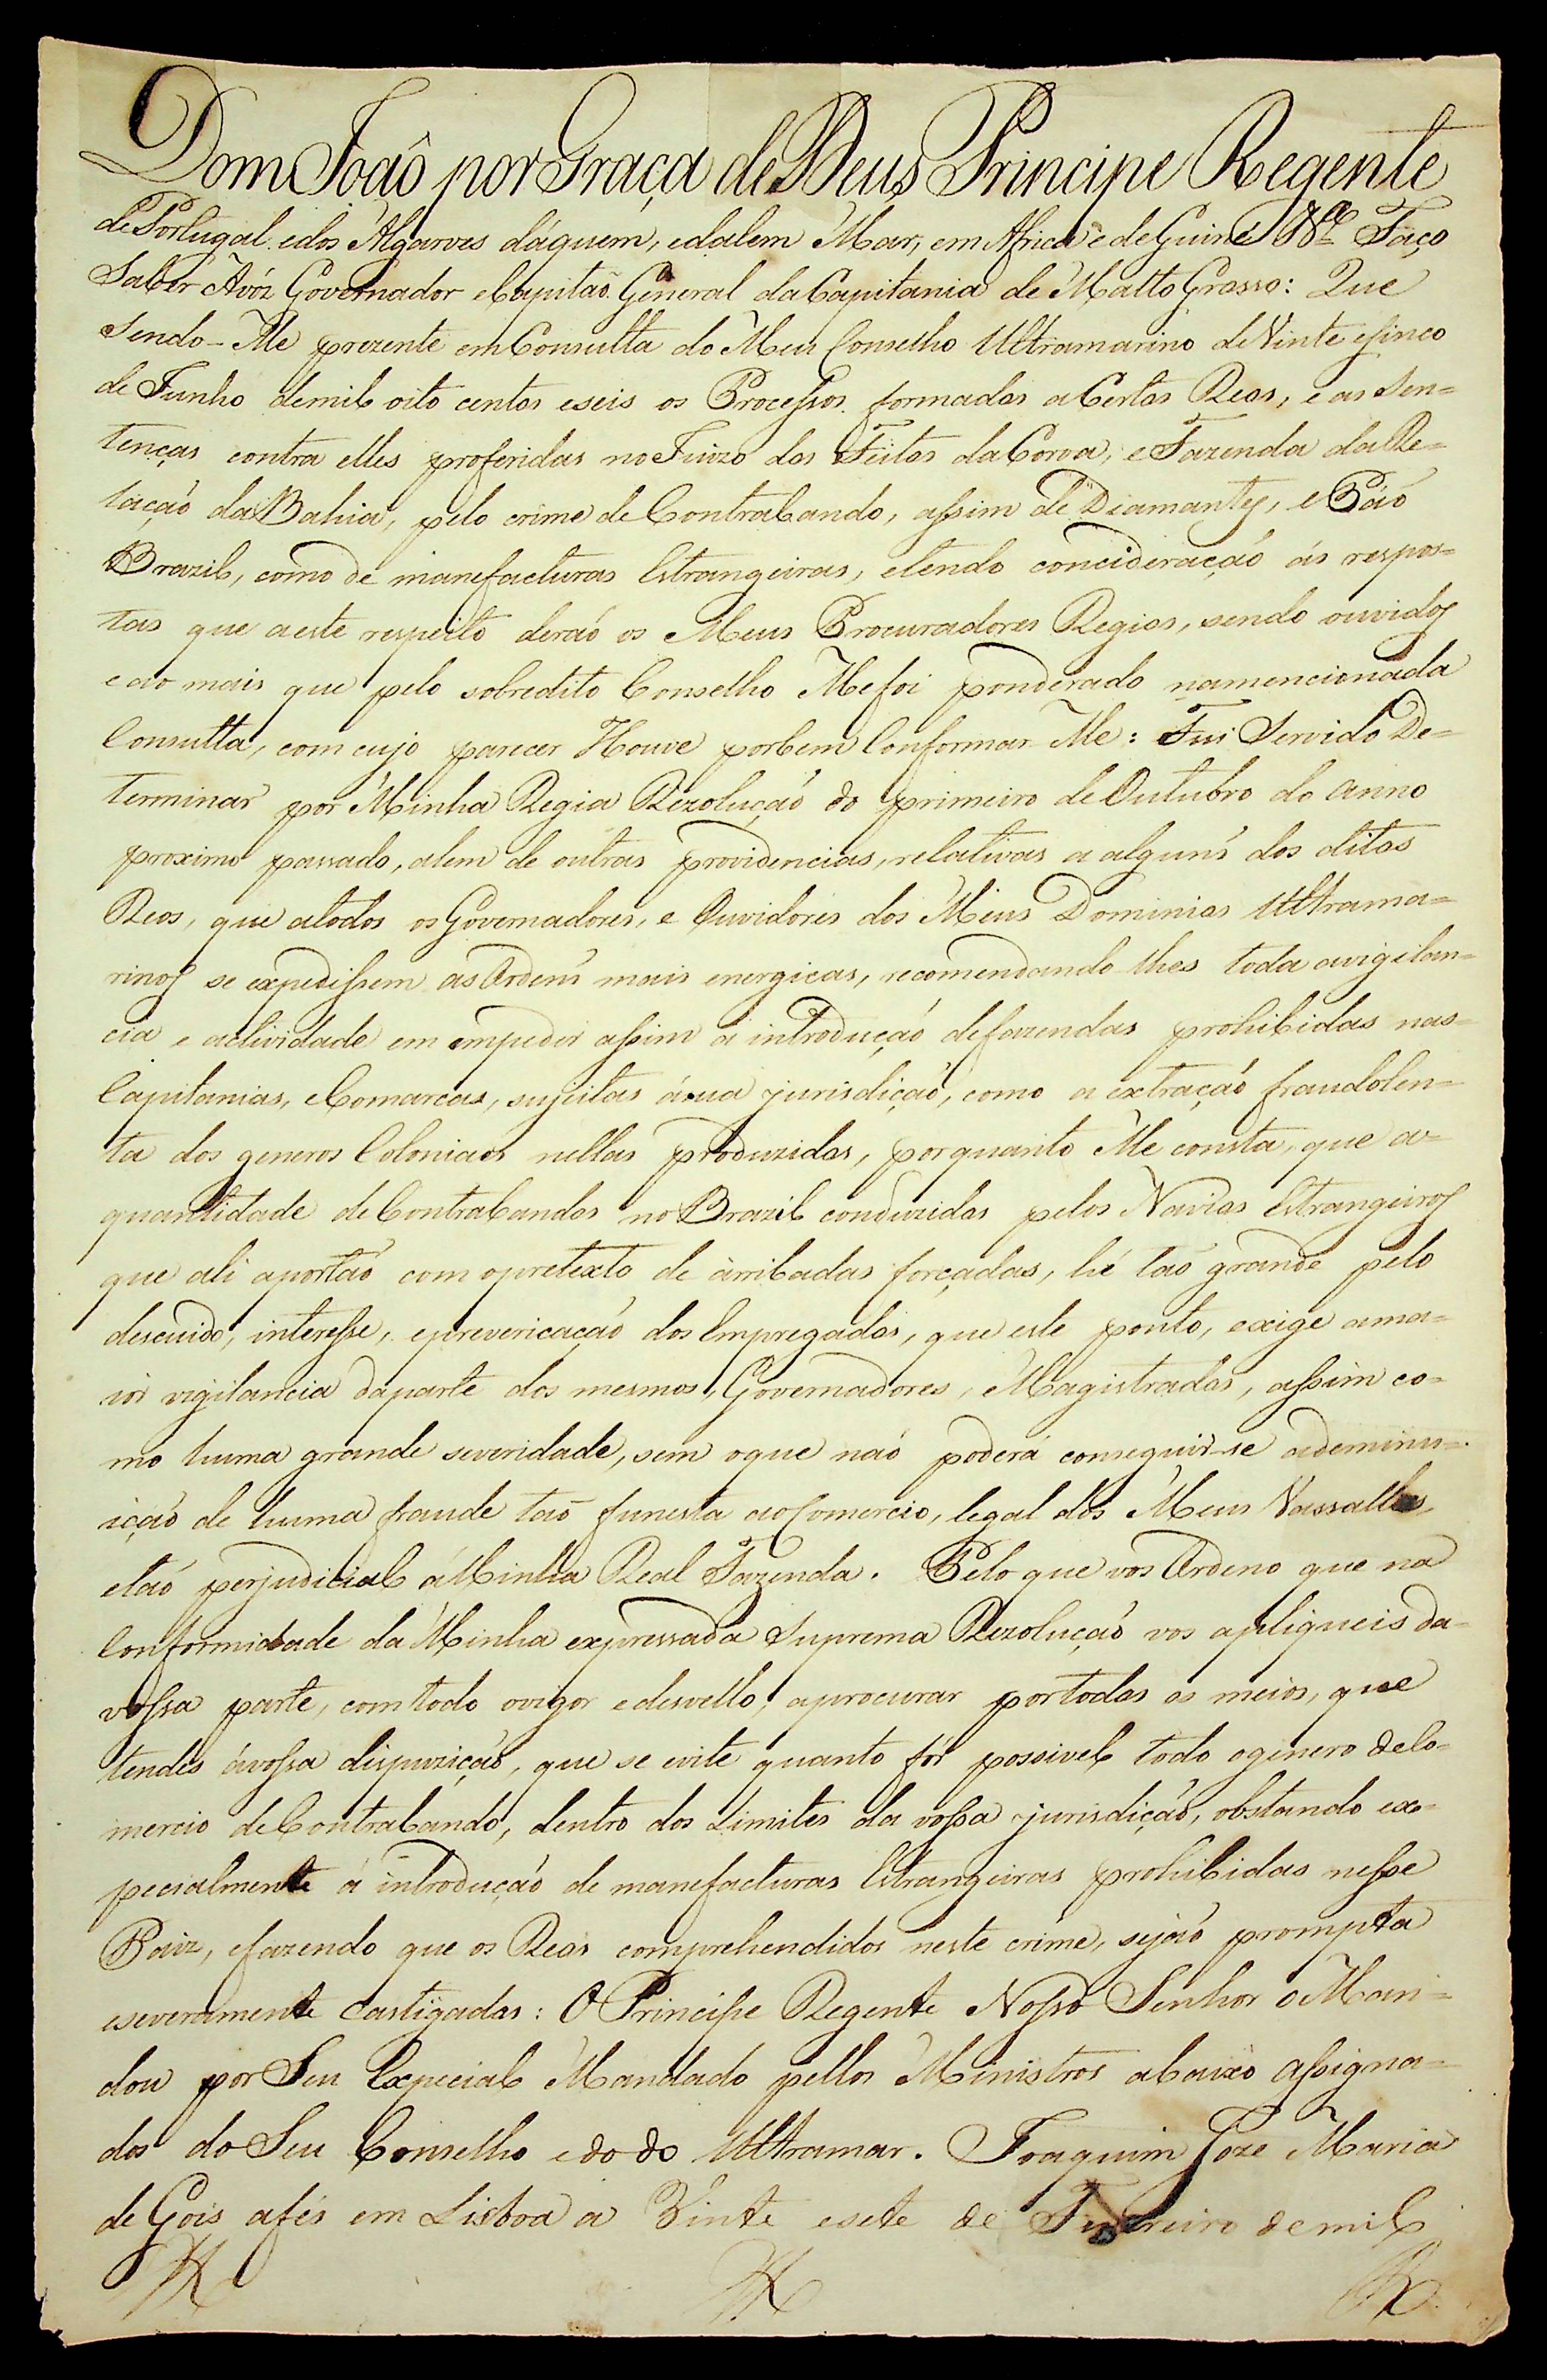 Dom Joaõ por Graça de Deus Principe Regente
de Portugal. edos Algarves dáquem, edalem Mar, em Africa e de Guiné &ª Faço
Saber Avós Governador eCapitaõ General daCapitania de Matto Grosso: Que
Sendo-Me prezente emConsulta do Meu Conselho Ultramarino deVinte eSinco
de Junho demil oito centos eseis os Processos formados aCertos Reos, e as Sen=
tenças contra elles proferidas noJuizo dos Feitos daCoroa, eFazenda daRe=
laçaõ daBahia, pelo crime deContrabando, assim de Diamantes, e Páo
Brazil, como de manefacturas Estrangeiras, etendo concideraçaõ ás respos=
tas que aeste respeito deraõ os Meus Procuradores Regios, sendo ouvidos
e ao mais que pelo sobredito Conselho Mefoi ponderado namencionada
Consulta, com cujo parecer Houve porbem Conformar-Me: Fui Servido De=
terminar por Minha Regia Rezoluçaõ do primeiro deOutubro do anno
proximo passado, alem de outras providencias, relativas a alguns dos ditos
Reos, que atodos osGovernadores, e Ouvidores dos Meus Dominios Ultrama=
rinos se expedissem asOrdens mais energicas, recomendando-lhes toda avigilan=
cia e actividade em empedir assim a introducçaõ defazendas prohibidas nas
Capitanias, eComarcas, sujeitas ásua jurisdiçaõ, como a extraçaõ fraudolen=
ta dos generos Coloniaes nellas produzidos, porquanto Me consta, que a=
quantidade deContrabandos noBrazil conduzidos pelos Navios Estrangeiros
que ali aportaõ com opretexto de arribadas forçadas, hé taõ grande pelo
descuido, interesse, eprevericaçaõ dos Empregados, que este ponto, exige amai=
or vigilancia daparte dos mesmos, Governadores, eMagistrados, assim co=
mo huma grande severidade, sem oque naõ poderá conseguir-se ademinu=
içaõ de huma fraude taõ funesta aoComercio, legal dos Meus Vassallos,
etaõ perjudicial áMinha Real Fazenda. Pelo que vos Ordeno que na
Conformidade da Minha expressada Suprema Rezoluçaõ vos apliqueis da=
vossa parte, comtodo ovigor edesvello, aprocurar portodos os meios, que
tendes ávossa dispuziçaõ, que se evite quanto fôr possivel todo ogenero deCo=
mercio deContrabando, dentro dos Limites da vossa jurisdiçaõ, obstando ex=
pecialmente á introduçaõ de manefacturas Estrangeiras prohibidas nesse
Paiz, efazendo que os Reos comprehendidos neste crime, sejaõ prompta
eseveramente Castigados: O Principe Regente Nosso Senhor oMan=
dou por Seu Expecial Mandado pellos Ministros abaixo assigna=
dos do Seu Conselho edodo Ultramar. Joaquim Joze Maria
de Gois afés em Lisboa a Vinte esete de Fevreiro demil